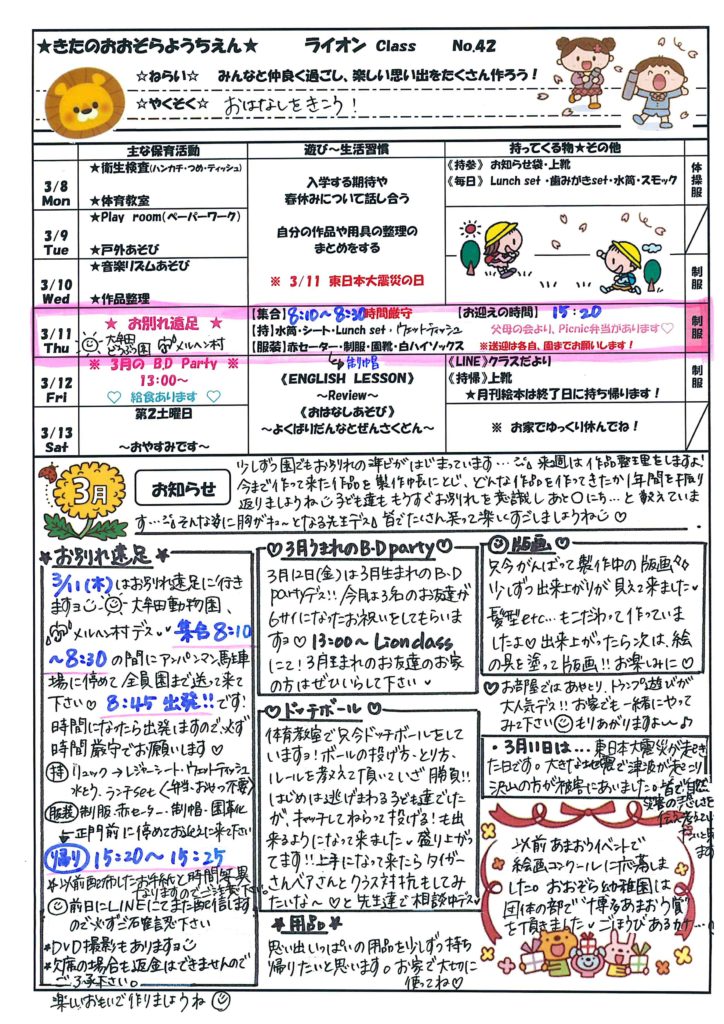 ★きたのおおぞらようちえん★　ライオン Class　No.42
☆ねらい☆　みんなと仲良く過ごし、楽しい思い出をたくさん作ろう！
☆やくそく☆　おはなしをきこう！
主な保育活動　遊び～生活習慣　持ってくる物★その他
3/8
Mon
★衛生検査(ハンカチ・つめ・ティッシュ)
★体育教室
3/9
Tue
★Play room(ペーパーワーク)
★戸外あそび
3/10
Wed
★音楽リズムあそび
★作品整理
入学する期待や
春休みについて話し合う
自分の作品や用具の整理の
まとめをする
※ 3/11 東日本大震災の日
《持参》お知らせ袋・上靴
《毎日》Lunch set・歯みがきset・水筒・スモック
体操服
制服
3/11
Thu
★ お別れ遠足 ★
大牟田
メルヘン村
【集合】8:10～8:30時間厳守
【持】水筒・シート・Lunch set・ウェットティッシュ
【服装】赤セーター・制服・園靴・白ハイソックス
【お迎えの時間】 15:20
父母の会より、Picnic弁当があります♡
※送迎は各自、園までお願いします！
制服
3/12
Fri
※ 3月の B.D Party ※
13:00～
♡ 給食あります ♡
《ENGLISH LESSON》
～Review～
《おはなしあそび》
～よくばりだんなとぜんさくどん～
《LINE》クラスだより
《持帰》上靴
★月刊絵本は終了日に持ち帰ります！
制服
3/13
Sat
第2土曜日
～おやすみです～
※ お家でゆっくり休んでね！
3月
お知らせ
少しずつ園でもお別れの準備がはじまっています…来週は作品整理をしますよ!
今まで作って来た作品を製作帳にとじ、どんな作品を作ってきたか1年間を振り
返りましょうね 子ども達ももうすぐお別れを意識しあと〇にち…と数えていま
す… そんな姿に胸がね～となる先生デス 皆でたくさん笑って楽しくすごしましょうね♡
★お別れ遠足★
3/11(木)はお別れ遠足に行き
ますョ 大牟田動物園、
メルヘン村デス♥ 集合8:10
～8:30の間にアンパンマン駐車
場に停めて全員園まで送って来て
下さい♡ 8:45 出発!!です!
時間になったら出発しますので、必ず
時間厳守でお願いします♡
持 リュック→レジャーシート・ウェットティッシュ
水とう、ランチset〈弁当・おやつ不要〉
服装 制服・赤セーター・制帽・園車化
←正門前に停めてお迎えに来て下さい
帰り 15:20～15:25
★以前配布したお手紙と時間等異
なりますのでご注意下さい
前日にLINEにてまた配信します
のでご確認下さい
★DVD撮影もありますョ
★欠席の場合も返金はできませんので
ご了承下さい。
楽しいおもいで作りましょうね
♡3月うまれのB・D party♡
3月12日(金)は3月生まれのB.D
partyデス!! 今月は3名のお友達が
6才になったお祝いをしてもらいま
すョ♡ 13:00～ Lion class
にて! 3月生まれのお友達のお家
の方はぜひいらして下さい♥
♡ドッチボール♡
体育教室で只今ドッチボールをして
いますョ! ボールの投げ方・とり方、
ルールを教えて頂いていざ勝負!!
はじめは逃げまわる子ども達でした
が、キャッチしてねらって投げる! も出
来るようになって来ました♥ 盛り上がっ
てます!! 上手になって来たらタイガー
さんベアさんとクラス対抗もしてみ
たいな～♡と先生達で相談中デス♥
★用品★
思い出いっぱいの用品を少しずつ持ち
帰りたいと思います。お家で大切に
使ってね♡
版画♡
只今がんばって製作中の版画
少しずつ出来上がりが見えて来ました♥
髪型etc…もこだわって作っていま
したよ♡出来上がったら次は、絵
の具を塗って版画!! お楽しみに♡
♡お部屋ではあやとり、トランプ遊びが
大人気デス!! お家でも一緒にやって
みて下さい もりあがりますよ～♪
・3月11日は…東日本大震災が起き
た日です。大きな地震で津波が起こり
沢山の方が被害にあいました。皆で自然
災害の恐しさを
以前あまおうイベントで
絵画コンクールに応募しま
した。おおぞら幼稚園は
団体の部で"博多あまおう賞"
を頂きました♥ ごほうびあるカナ…♡